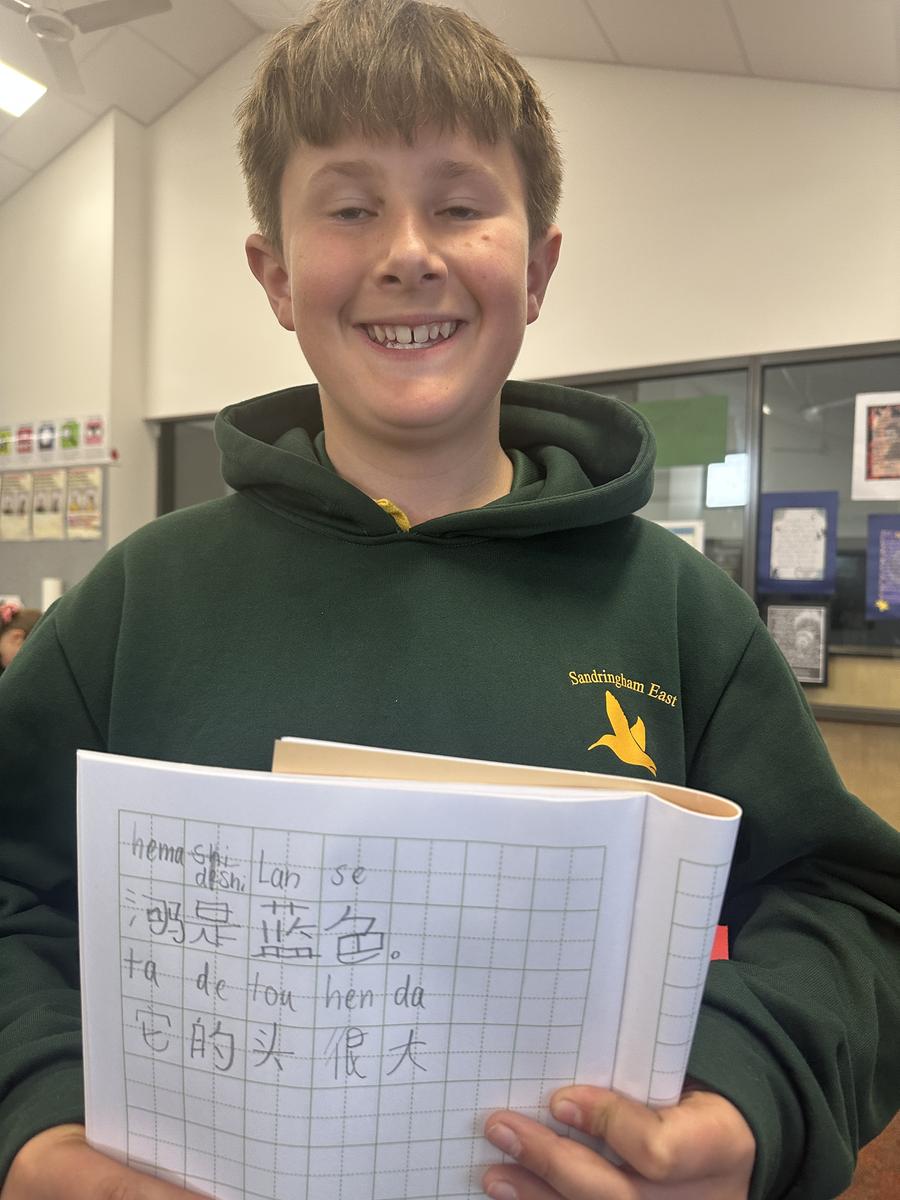 Sandringham East
hema shi Lan se
deshi
河马是 蓝色。
ta de tou hen da
它的头 很大